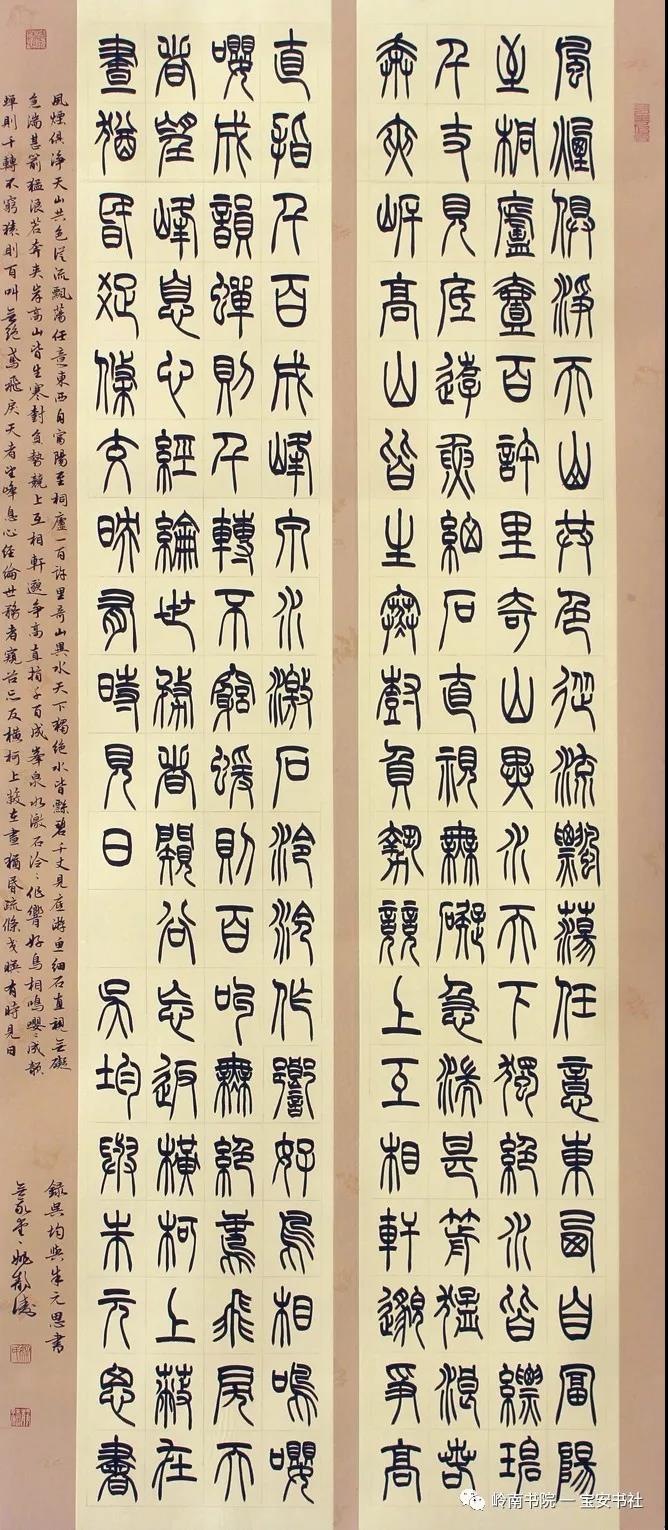 風煙俱淨天山共色從流飄蕩任意東西自富陽
至桐廬壹百許里奇山異水天下獨絕水皆縹碧
千丈見底游魚細石直視無礙急湍甚箭猛浪若
奔夾岸高山皆生寒樹負勢競上互相軒邈爭高
直指千百成峰泉水激石泠泠作響好鳥相鳴嚶
嚶成韻蟬則千轉不窮猨則百叫無絕鳶飛戾天
者望峰息心經綸世務者闚谷忘返橫柯上蔽在
晝猶昏疏條交映有時見日 吳均與朱元思書
風煙俱淨天山共色從流飄蕩任意東西自富陽至桐廬一百許里奇山異水天下獨絕水皆縹碧千丈見底游魚細石直視無礙
急湍甚箭猛浪若奔夾岸高山皆生寒樹負勢競上互相軒邈爭高直指千百成峯泉水激石泠〻作響好鳥相鳴嚶〻成韻
蟬則千轉不窮猿則百叫無絕鳶飛戾天者望峰息心經綸世務者窺谷忘反橫柯上蔽在晝猶昏疏條交映有時見日
錄吳均與朱元思書
岭南书院 — 宝安书社